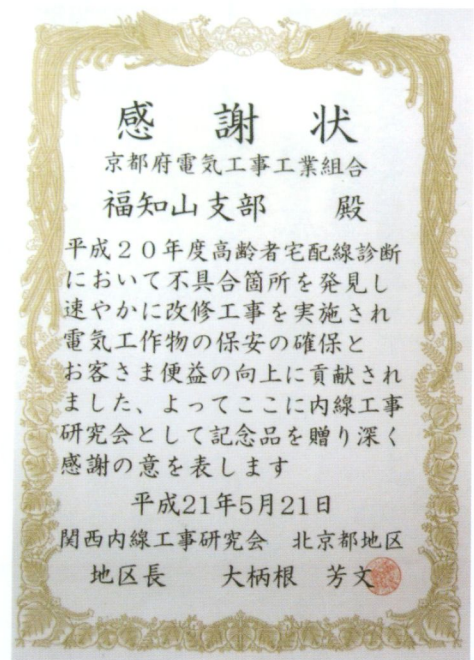 感謝状
京都府電気工事工業組合
福知山支部　殿
平成２０年度高齢者宅配線診断
において不具合箇所を発見し
速やかに改修工事を実施され
電気工作物の保安の確保と
お客さま便益の向上に貢献され
ました、よってここに内線工事
研究会として記念品を贈り深く
感謝の意を表します
平成21年5月21日
関西内線工事研究会　北京都地区
地区長　大柄根　芳文